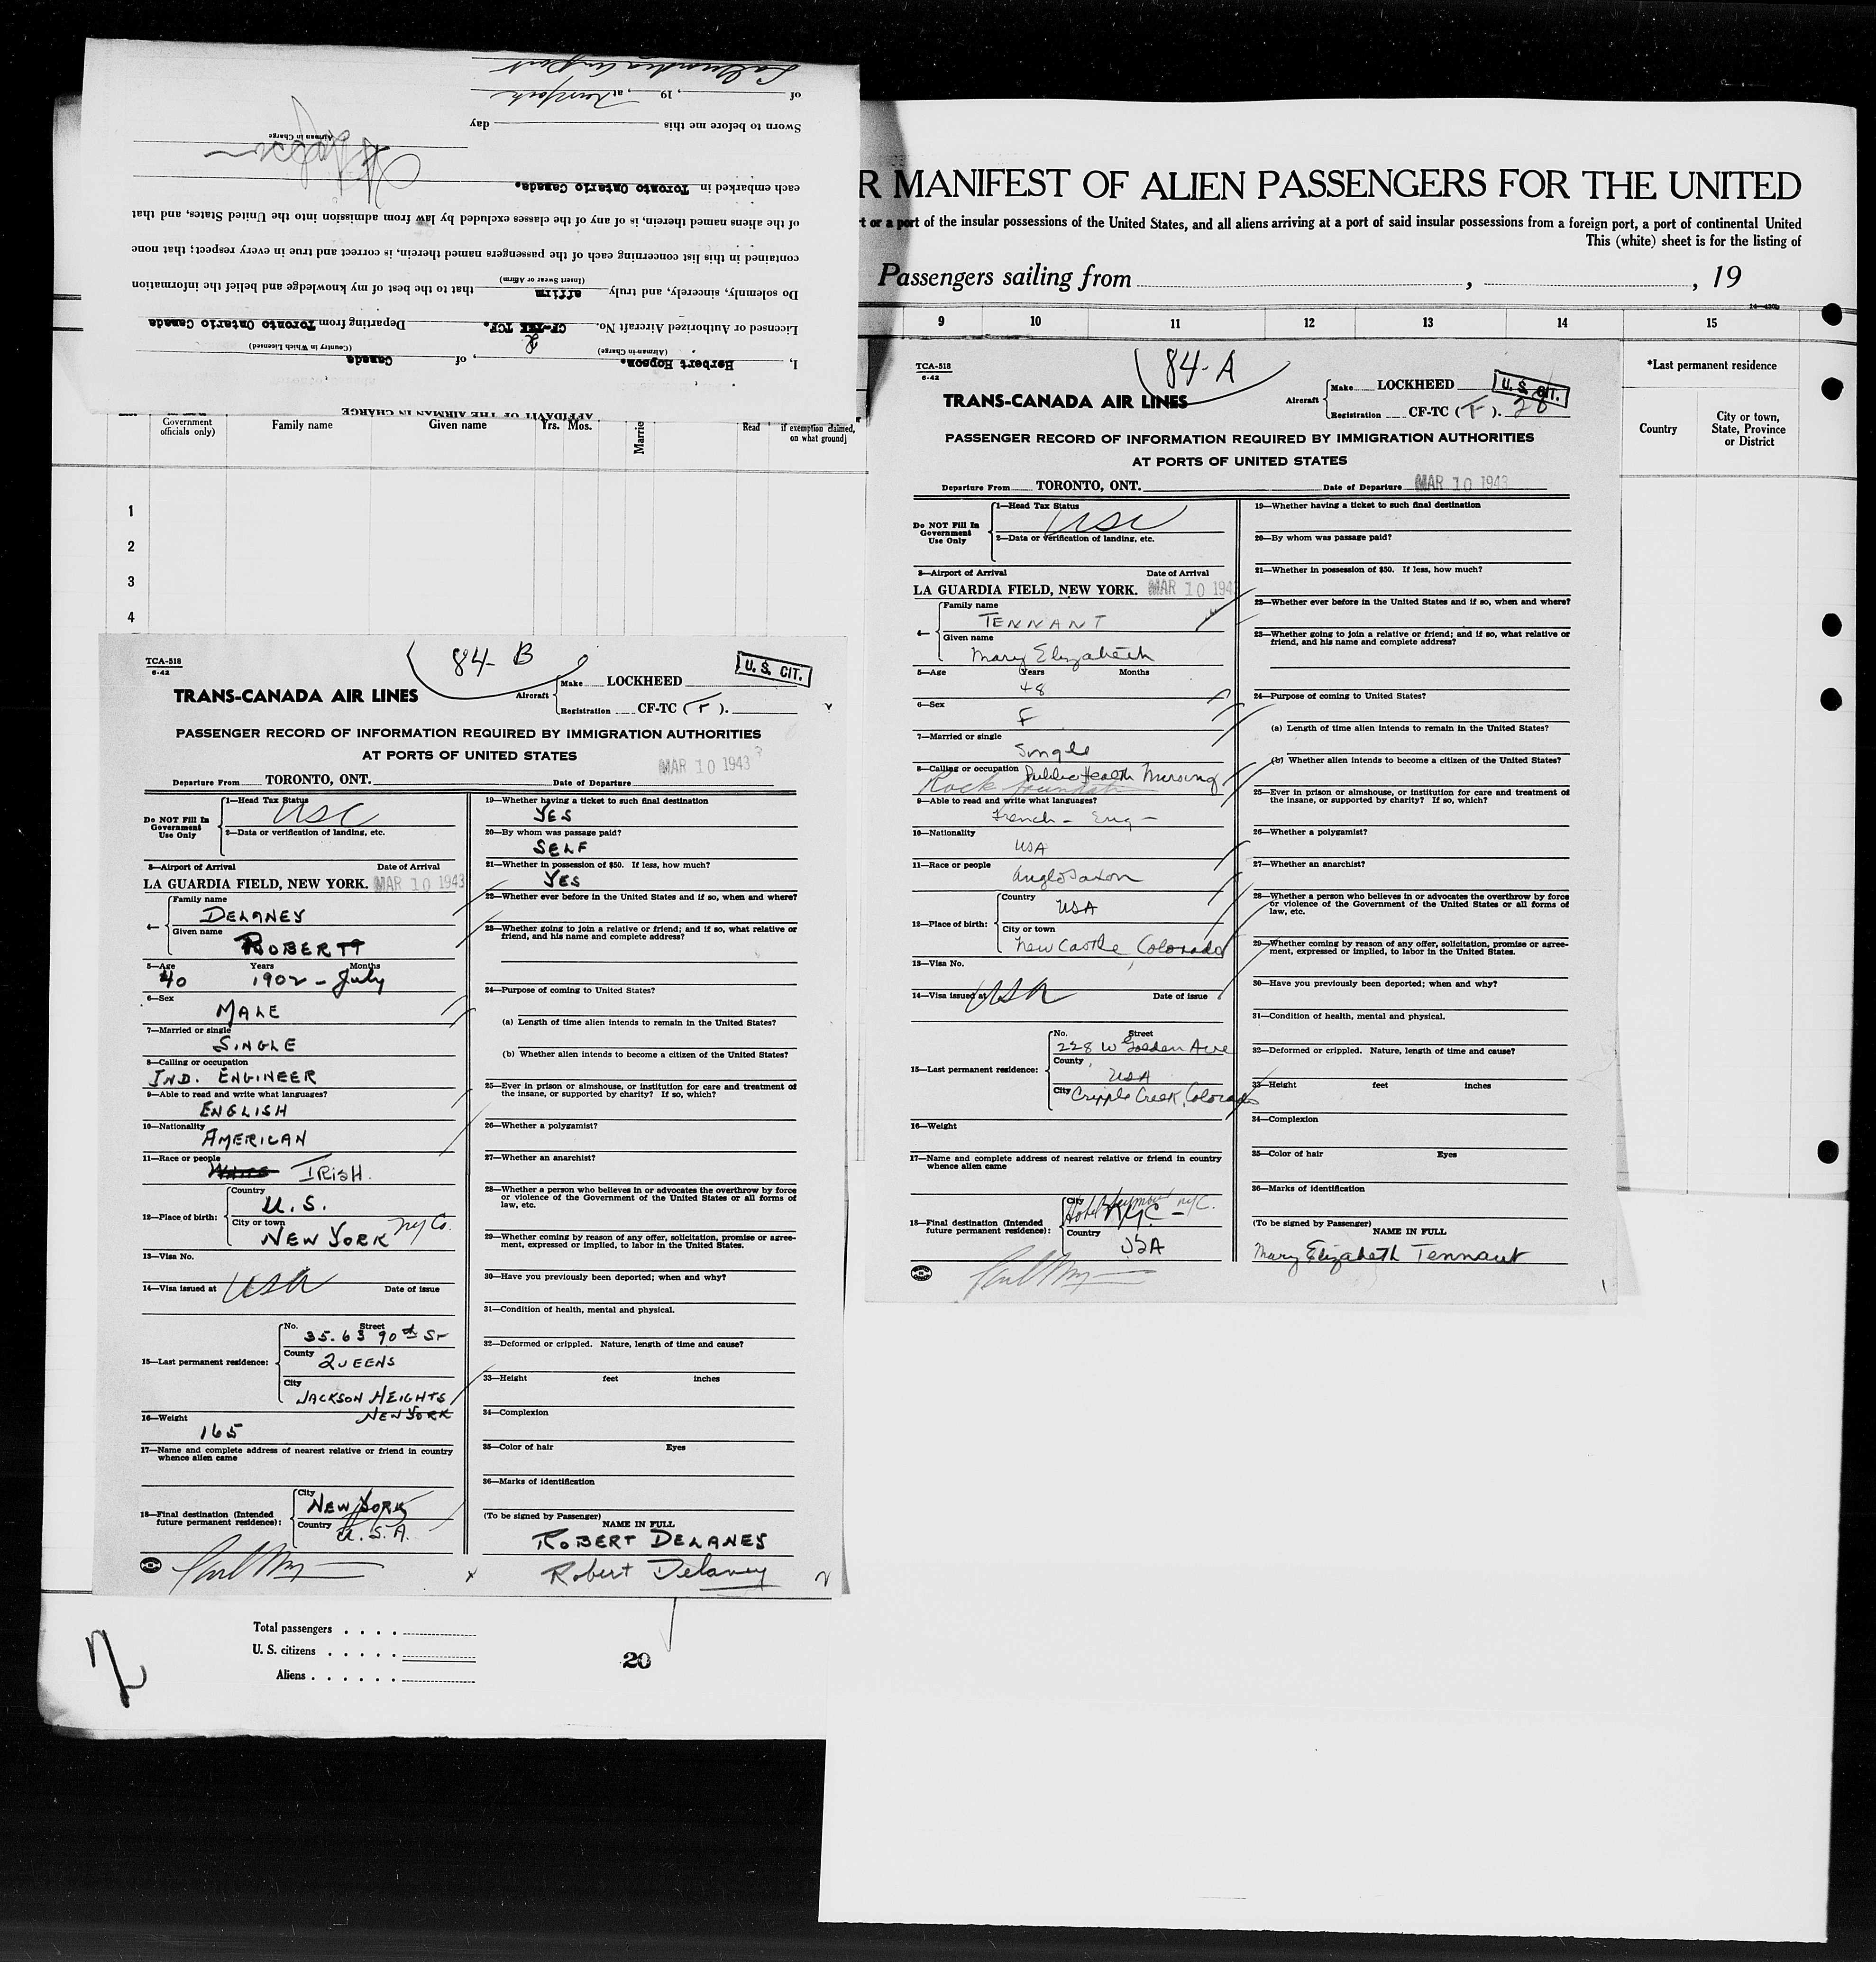 AFFIDAVIT OF THE AIRMAN IN CHARGE
I, Herbert Hopson. , of Canada
(Airman in Charge) (Country in Which Licensed)
Licensed or Authorized Aircraft No. CF- TCF. Departing from Toronto Ontario Canada
Do solemnly, sincerely, and truly affirm that to the best of my knowledge and belief the information
(Insert Swear or Affirm)
contained in this list concerning each of the passengers named therein, is correct and true in every respect; that none
of the aliens named therein, is of any of the classes excluded by law from admission into the United States, and that
each embarked in Toronto Ontario Canada.
Airman in Charge
Sworn to before me this day
of , 19 , at New York
R MANIFEST OF ALIEN PASSENGERS FOR THE UNITED
rt or a port of the insular possessions of the United States, and all aliens arriving at a port of said insular possessions from a foreign port, a port of continental United
This (white) sheet is for the listing of
Passengers sailing from , , 19
9 10 11 12 13 14 15
*Last permanent residence
Country
City or town, State, Province or District
Government officials only)
Family name Given name Yrs. Mos. Marrie Read if exemption claimed, on what ground]
1
2
3
4
TCA-518
6-42
84-B
U. S. CIT.
TRANS-CANADA AIR LINES
Aircraft
Make LOCKHEED
Registration CF-TC (F).
PASSENGER RECORD OF INFORMATION REQUIRED BY IMMIGRATION AUTHORITIES
AT PORTS OF UNITED STATES
Departure From TORONTO, ONT. Date of Departure MAR 10 1943
Do NOT Fill In Government Use Only
1—Head Tax Status USC
2—Data or verification of landing, etc.
3—Airport of Arrival Date of Arrival
LA GUARDIA FIELD, NEW YORK. MAR 10 1943
4—
Family name
DELANEY
Given name
ROBERT
5—Age Years Months
40 1902 - July
6—Sex
MALE
7—Married or single
SINGLE
8—Calling or occupation
IND. ENGINEER
9—Able to read and write what languages?
ENGLISH
10—Nationality
AMERICAN
11—Race or people
IRISH.
12—Place of birth:
Country
U.S.
City or town
NEW YORK NY Co.
13—Visa No.
14—Visa issued at USA Date of issue
15—Last permanent residence:
No. Street
35.63 90th St
County
QUEENS
City
JACKSON HEIGHTS
NEW YORK
16—Weight
165
17—Name and complete address of nearest relative or friend in country whence alien came
18—Final destination (Intended future permanent residence):
City
NEW YORK
Country
U.S.A.
19—Whether having a ticket to such final destination
YES
20—By whom was passage paid?
SELF
21—Whether in possession of $50. If less, how much?
YES
22—Whether ever before in the United States and if so, when and where?
23—Whether going to join a relative or friend; and if so, what relative or friend, and his name and complete address?
24—Purpose of coming to United States?
(a) Length of time alien intends to remain in the United States?
(b) Whether alien intends to become a citizen of the United States?
25—Ever in prison or almshouse, or institution for care and treatment of the insane, or supported by charity? If so, which?
26—Whether a polygamist?
27—Whether an anarchist?
28—Whether a person who believes in or advocates the overthrow by force or violence of the Government of the United States or all forms of law, etc.
29—Whether coming by reason of any offer, solicitation, promise or agreement, expressed or implied, to labor in the United States.
30—Have you previously been deported; when and why?
31—Condition of health, mental and physical.
32—Deformed or crippled. Nature, length of time and cause?
33—Height feet inches
34—Complexion
35—Color of hair Eyes
36—Marks of identification
(To be signed by Passenger)
NAME IN FULL
ROBERT DELANEY
Robert Delaney
TCA-518
6-42
84-A
U. S. CIT.
28
TRANS-CANADA AIR LINES
Aircraft
Make LOCKHEED
Registration CF-TC (F).
PASSENGER RECORD OF INFORMATION REQUIRED BY IMMIGRATION AUTHORITIES
AT PORTS OF UNITED STATES
Departure From TORONTO, ONT. Date of Departure MAR 10 1943
Do NOT Fill In Government Use Only
1—Head Tax Status
USC
2—Data or verification of landing, etc.
3—Airport of Arrival Date of Arrival
LA GUARDIA FIELD, NEW YORK. MAR 10 194
4—
Family name
TENNANT
Given name
Mary Elizabeth
5—Age Years Months
48
6—Sex
F
7—Married or single
Single
8—Calling or occupation Public Health Nursing
Rock foundation
9—Able to read and write what languages?
French - Eng -
10—Nationality
USA
11—Race or people
Anglo Saxon
12—Place of birth:
Country
USA
City or town
New Castle, Colorado
13—Visa No.
14—Visa issued at USA Date of issue
15—Last permanent residence:
No. Street
228 W Golden Ave
County
USA
City Cripple Creek, Colorado
16—Weight
17—Name and complete address of nearest relative or friend in country whence alien came
18—Final destination (Intended future permanent residence):
City
Hotel Seymour NYC.
NYC -
Country
USA
19—Whether having a ticket to such final destination
20—By whom was passage paid?
21—Whether in possession of $50. If less, how much?
22—Whether ever before in the United States and if so, when and where?
23—Whether going to join a relative or friend; and if so, what relative or friend, and his name and complete address?
24—Purpose of coming to United States?
(a) Length of time alien intends to remain in the United States?
(b) Whether alien intends to become a citizen of the United States?
25—Ever in prison or almshouse, or institution for care and treatment of the insane, or supported by charity? If so, which?
26—Whether a polygamist?
27—Whether an anarchist?
28—Whether a person who believes in or advocates the overthrow by force or violence of the Government of the United States or all forms of law, etc.
29—Whether coming by reason of any offer, solicitation, promise or agreement, expressed or implied, to labor in the United States.
30—Have you previously been deported; when and why?
31—Condition of health, mental and physical.
32—Deformed or crippled. Nature, length of time and cause?
33—Height feet inches
34—Complexion
35—Color of hair Eyes
36—Marks of identification
(To be signed by Passenger)
NAME IN FULL
Mary Elizabeth Tennant
Total passengers
U. S. citizens
Aliens
20
2